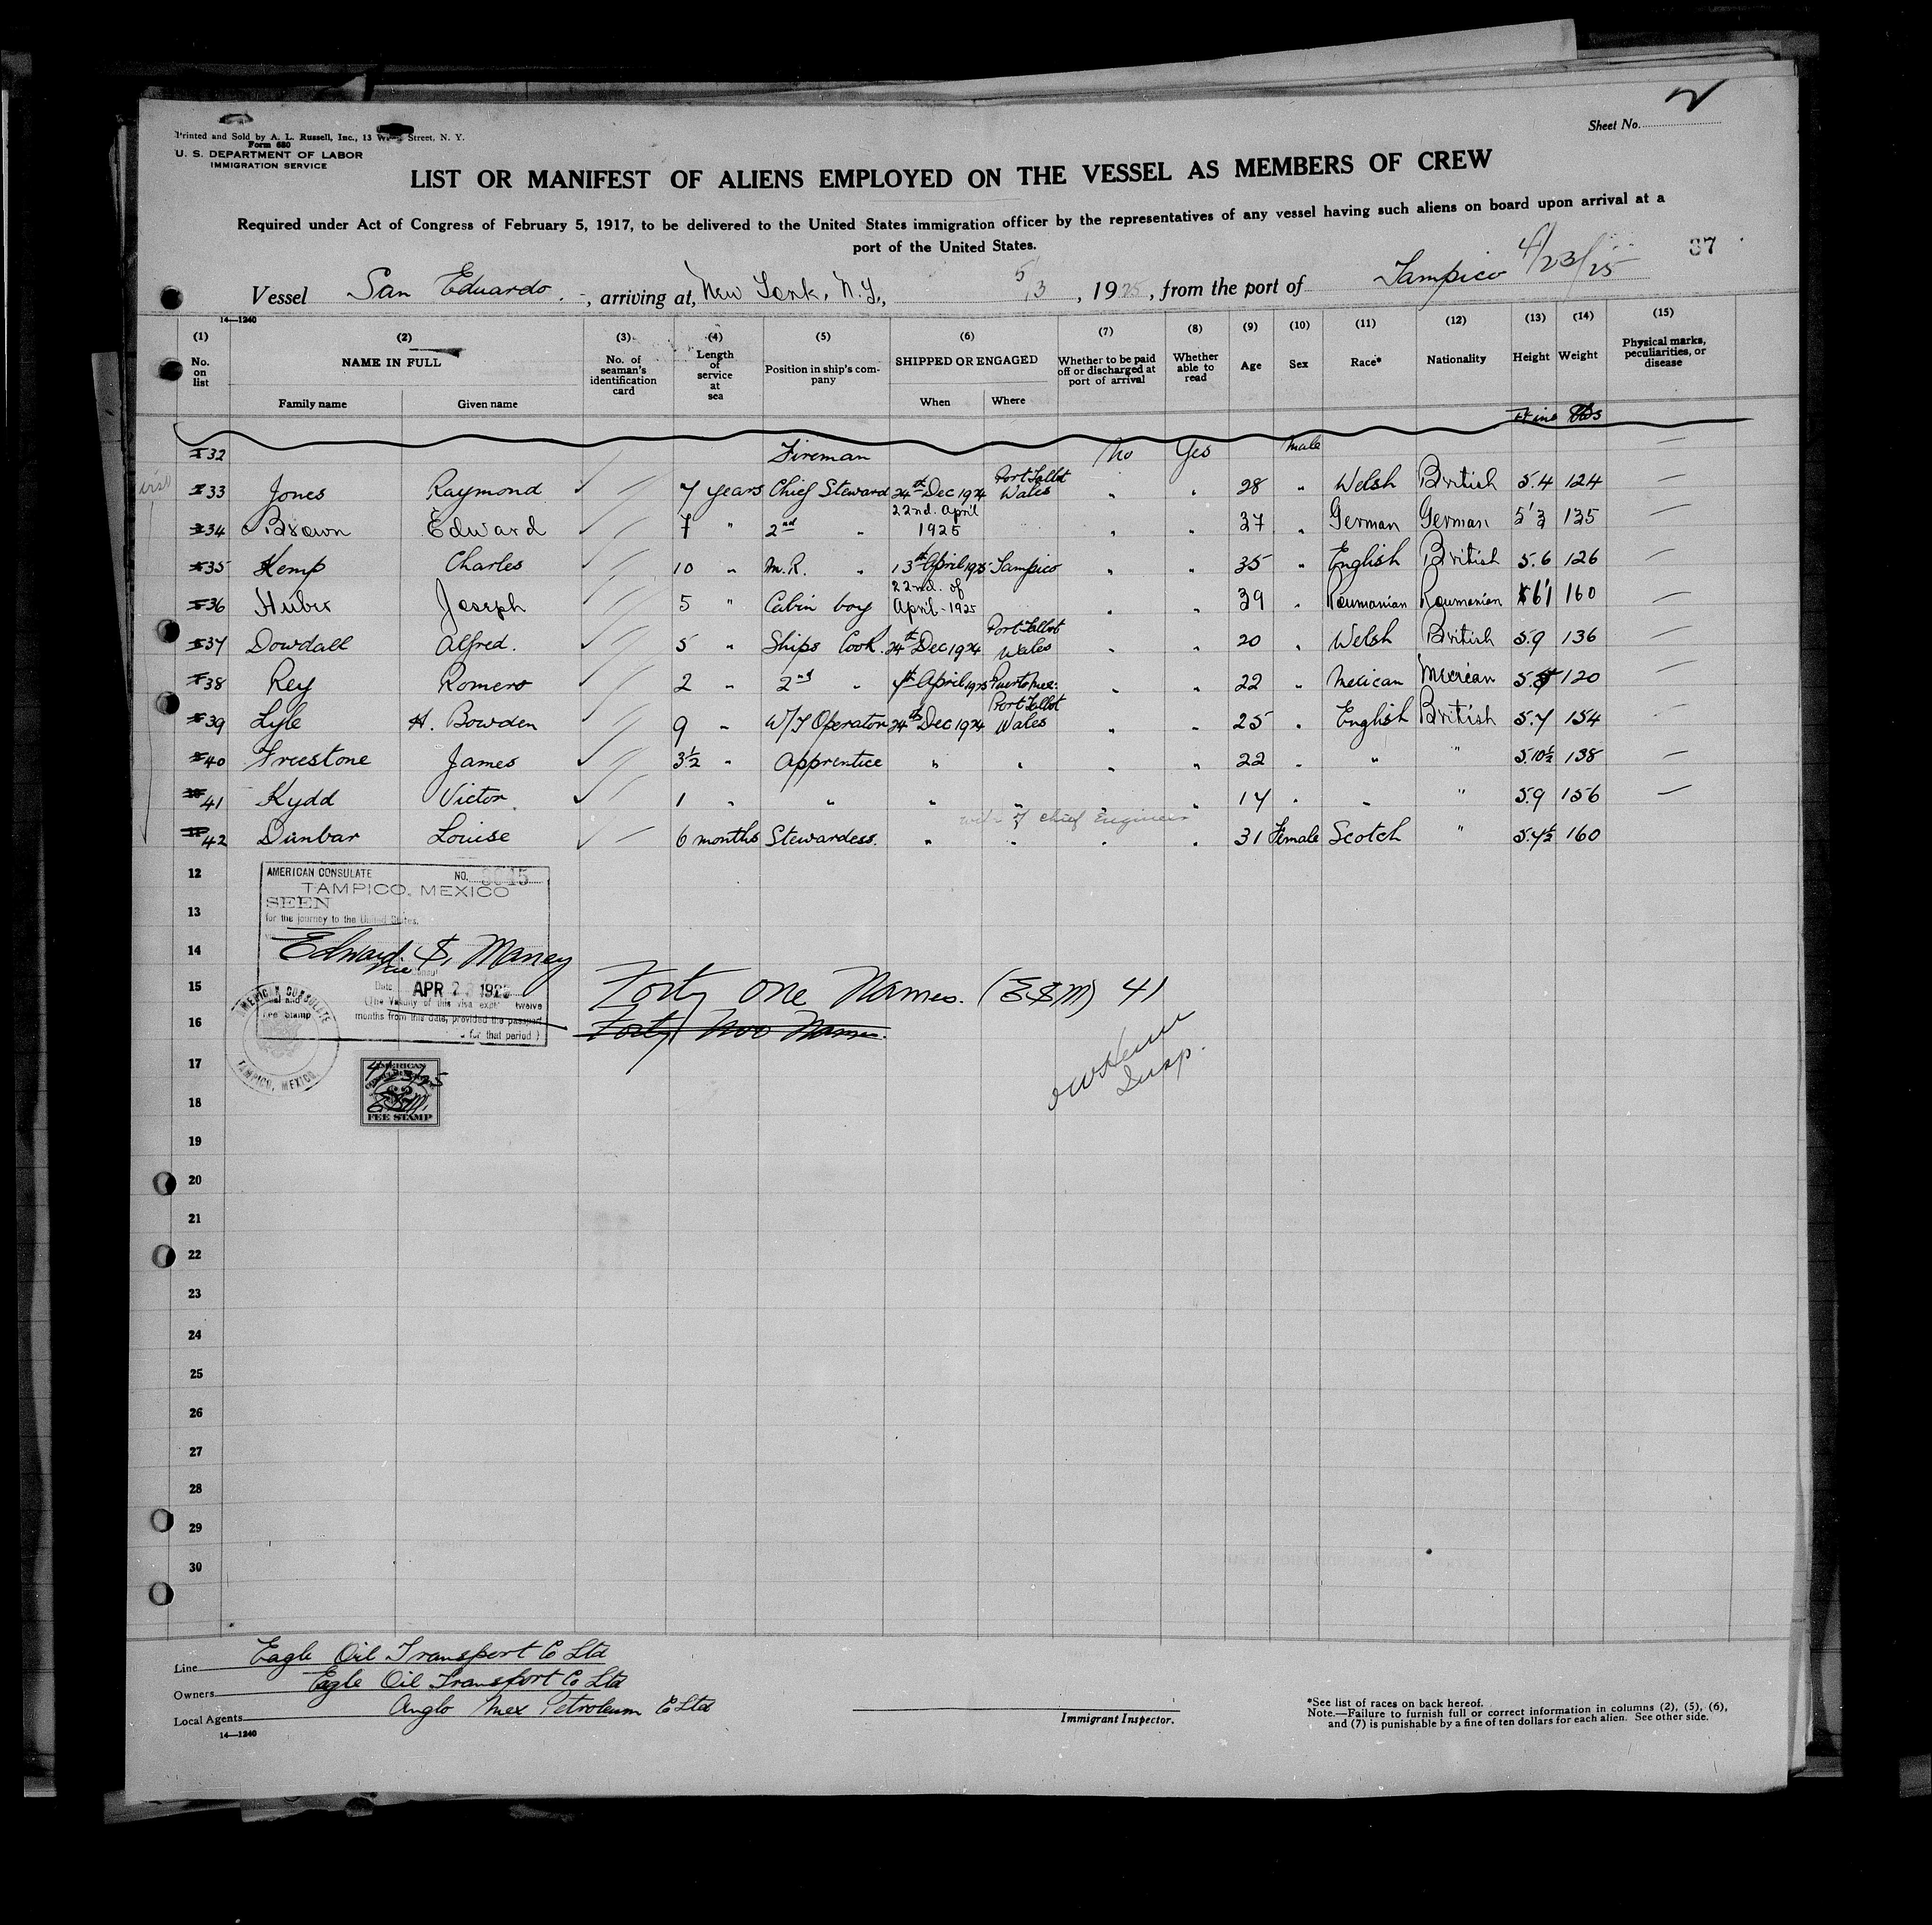 2
Sheet No.
Printed and Sold by A. L. Russell, Inc., 13 Street, N. Y.
Form 680
U. S. DEPARTMENT OF LABOR
IMMIGRATION SERVICE
LIST OR MANIFEST OF ALIENS EMPLOYED ON THE VESSEL AS MEMBERS OF CREW
Required under Act of Congress of February 5, 1917, to be delivered to the United States immigration officer by the representatives of any vessel having such aliens on board upon arrival at a
port of the United States.
4/23/25 37
Vessel San Eduardo, arriving at, New York, N.Y., 5/3, 1925, from the port of Tampico
14—1240
(1) (2) (3) (4) (5) (6) (7) (8) (9) (10) (11) (12) (13) (14) (15)
No. on list NAME IN FULL No. of seaman's identification card Length of service at sea Position in ship's company SHIPPED OR ENGAGED Whether to be paid off or discharged at port of arrival Whether able to read Age Sex Race* Nationality Height Weight Physical marks, peculiarities, or disease
Family name Given name When Where
Ft ins lbs
32 Fireman No Yes Male
33 Jones Raymond 7 years Chief Steward 24th Dec 1924 Port Talbot Wales " " 28 " Welsh British 5.4 124 —
34 Brown Edward 7 " 2nd " 22nd. April 1925 " " 37 " German German 5'3 135 —
35 Kemp Charles 10 " M.R. " 13th April 1925 Tampico " " 35 " English British 5.6 126 —
36 Huber Joseph 5 " Cabin boy 22nd. of April-1925 " " 39 " Roumanian Roumanian 6'1 160 —
37 Dowdall Alfred. 5 " Ships Cook. 24th Dec 1924 Port Talbot Wales " " 20 " Welsh British 5.9 136 —
38 Rey Romero 2 " 2nd " April 1925 Puerto Mex: " " 22 " Mexican Mexican 120 —
39 Lyle H. Bowden 9 " W/T Operator 24th Dec 1924 Port Talbot Wales " " 25 " English British 5.7 154 —
40 Freestone James 3½ " Apprentice " " " " 22 " " " 5.10½ 138 —
41 Kydd Victor 1 " " " " " " 17 " " " 5.9 156 —
wife of chief Engineer
42 Dunbar Louise 6 months Stewardess. " " " " 31 Female Scotch " 5.4½ 160
12
AMERICAN CONSULATE NO. 3045
TAMPICO, MEXICO
SEEN
13
for the journey to the United States.
14
Edward S. Maney
Vice Consul
15
Date APR 23 1925
(The Validity of this visa expires twelve
months from this date, provided the passport
for that period)
Forty one Names. (ESM) 41
16
Forty Two Names.
AMERICAN CONSULATE
Fee Stamp
TAMPICO, MEXICO
17
4/23/25
AMERICAN
$2
ESM.
FEE STAMP
Insp.
18
19
20
21
22
23
24
25
26
27
28
29
30
Line Eagle Oil Transport Co Ltd
Owners Eagle Oil Transport Co Ltd
Local Agents Anglo Mex Petroleum Co Ltd
14—1240
Immigrant Inspector.
*See list of races on back hereof.
Note.—Failure to furnish full or correct information in columns (2), (5), (6),
and (7) is punishable by a fine of ten dollars for each alien. See other side.